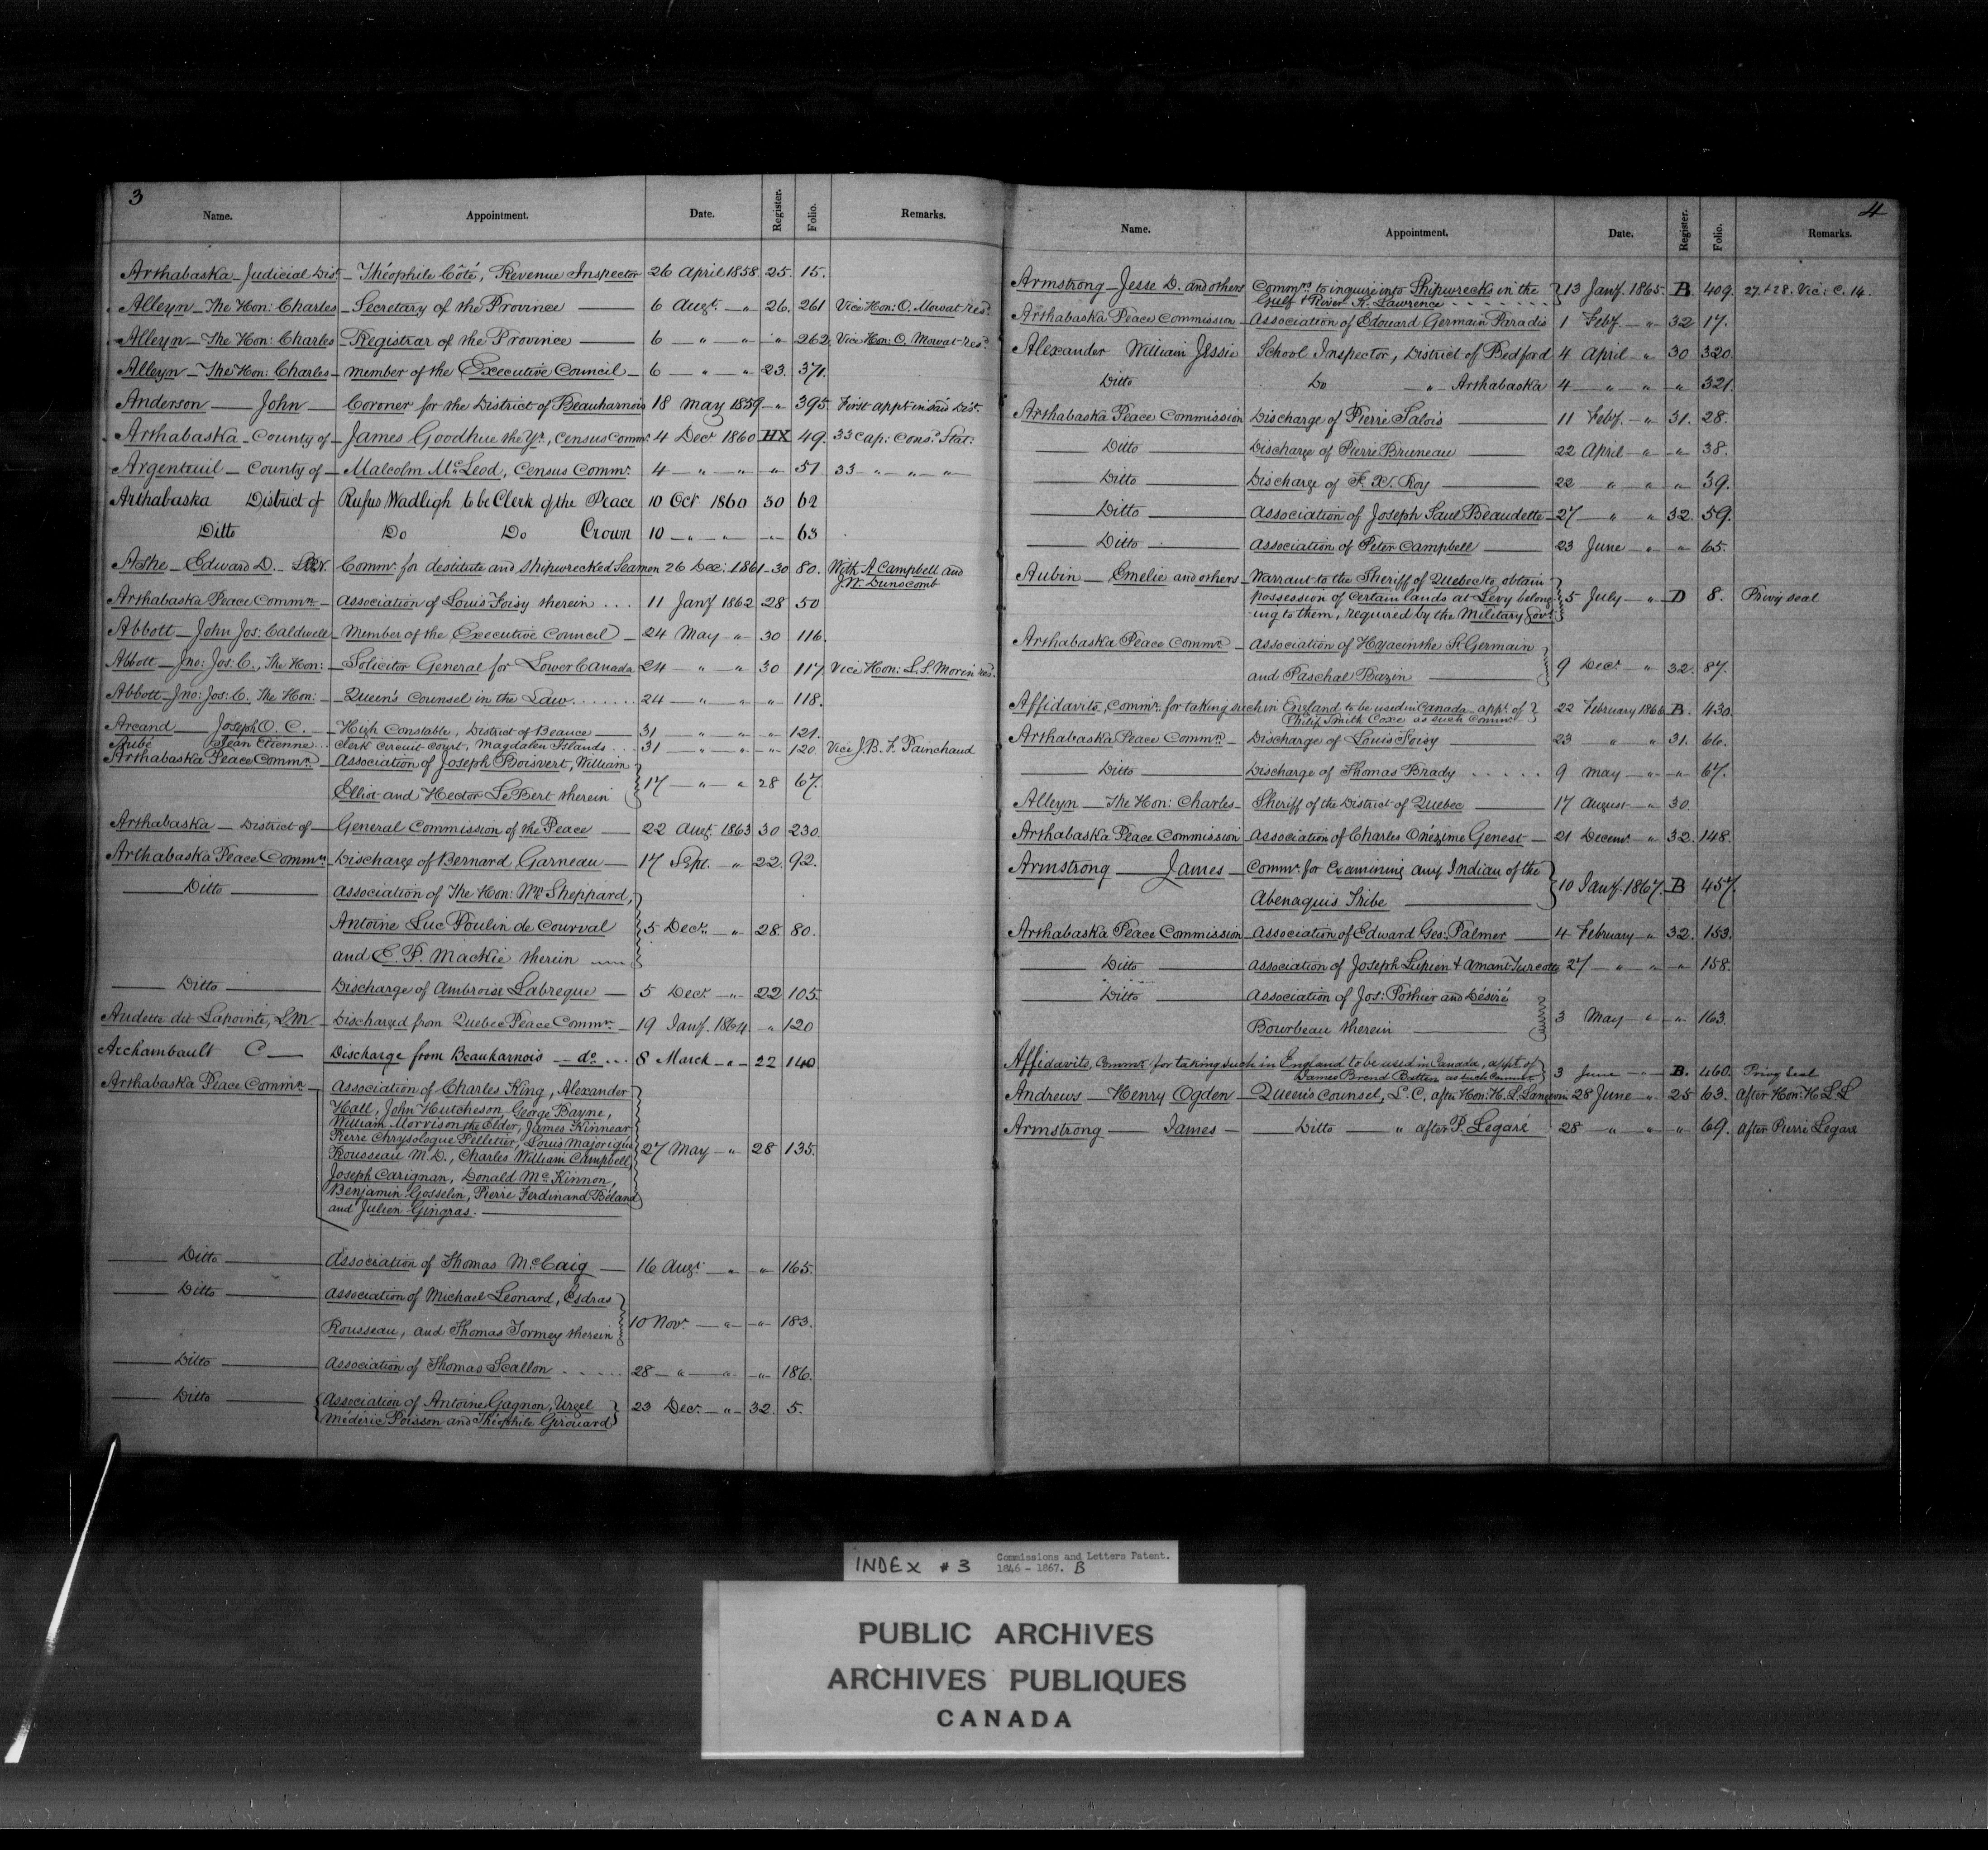 3
Name. Appointment. Date. Register. Folio. Remarks.
Arthabaska - Judicial Dist. - Théophile Côté, Revenue Inspector 26 April 1858. 25. 15.
Alleyn - The Hon: Charles - Secretary of the Province 6 Augt. — „ 26. 261 Vice Hon: O. Mowat resd.
Alleyn - The Hon: Charles - Registrar of the Province 6 — „ — „ — „ 262. Vice Hon: O. Mowat resd.
Alleyn - The Hon: Charles - Member of the Executive Council - 6 — „ — „ 23. 371.
Anderson — John — Coroner for the District of Beauharnois 18 May 1859 — „ 395. First appt. in said Dist.
Arthabaska - County of - James Goodhue the Yr., Census Commr. 4 Decr 1860 HX 49. 33 Cap: Cons. Stat:
Argenteuil - County of - Malcolm McLeod, Census Commr. 4 — „ — „ — „ 51 33 — „ — „ — „
Arthabaska District of Rufus Wadligh to be Clerk of the Peace 10 Oct 1860 30 62
Ditto Do Do Crown 10 — „ — „ — „ 63
Ashe - Edward D. Commr. for destitute and shipwrecked Seamen 26 Dec: 1861 - 30 80. With A Campbell and
J.W. Dunscomb
Arthabaska Peace Commn. - Association of Louis Foisy therein ... 11 Jany 1862 28 50
Abbott - John Jos: Caldwell - Member of the Executive Council - 24 May - „ 30 116.
Abbott - Jno: Jos: C., The Hon: - Solicitor General for Lower Canada 24 — „ — „ 30 117 Vice Hon: L.S. Morin resd.
Abbott - Jno: Jos: C. The Hon: - Queen's Counsel in the Law ...... 24 — „ — „ „ 118.
Arcand — Joseph O. C. - High Constable, District of Beauce 31 — „ — „ — „ 121.
Aubé Jean Etienne .. Clerk Circuit Court, Magdalen Islands ... 31 — „ — „ — „ 120. Vice J.B.F. Painchaud
Arthabaska Peace Commn. - Association of Joseph Boisvert, William
Elliot and Hector LeBert therein 17 — „ — „ 28 67.
Arthabaska - District of - General Commission of the Peace 22 Augt. 1863 30 230
Arthabaska Peace Commn. - Discharge of Bernard Garneau 17 Sept. „ 22. 92.
Ditto Association of The Hon: Wm. Sheppard,
Antoine Luc Poulin de Courval 5 Decr. - „ 28. 80.
and E. P. Mackie therein
Ditto Discharge of Ambroise Labreque 5 Decr. - „ 22 105.
Audette dit Lapointe, L.M. - Discharged from Quebec Peace Commn. - 19 Jany. 1864. „ 120
Archambault C — Discharge from Beauharnois — do. ... 8 March - „ 22 140
Arthabaska Peace Commn. Association of Charles King, Alexander
Hall, John Hutcheson, George Bayne,
William Morrison the Elder, James Kinnear
Pierre Chrysologue Pelletier, Louis Majorique
Rousseau M.D., Charles William Campbell, 27 May - „ 28 135.
Joseph Carignan, Donald McKinnon,
Benjamin Gosselin, Pierre Ferdinand Béland
and Julien Gingras.
Ditto Association of Thomas McCaig 16 Augt. — „ — „ 165.
Ditto Association of Michael Leonard, Esdras
Rousseau, and Thomas Tormey therein 10 Novr. — „ — „ 183.
Ditto Association of Thomas Scallon ..... 28 - „ — „ — „ 186.
Ditto Association of Antoine Gagnon, Urgel 23 Decr. - „ 32. 5.
Médéric Poisson and Théophile Girouard
4
Name. Appointment. Date. Register. Folio. Remarks.
Armstrong - Jesse D. and others Commrs. to inquire into Shipwrecks in the 13 Jany. 1865. B. 409. 27 & 28. Vic: C. 14.
Gulf & River St. Lawrence
Arthabaska Peace Commission - Association of Edouard Germain Paradis 1 Feby. — „ 32 17.
Alexander William Jessie School Inspector, District of Bedford 4 April - „ 30 320.
Ditto Do „ Arthabaska 4 — „ — „ — „ 321.
Arthabaska Peace Commission Discharge of Pierre Salois 11 Feby. - „ 31. 28.
Ditto Discharge of Pierre Bruneau 22 April - „ — „ 38.
Ditto Discharge of F. X. Roy 22 „ „ „ 39.
Ditto Association of Joseph Saul Beaudette - 27 — „ — „ 32. 59.
Ditto Association of Peter Campbell 23 June - „ „ 65.
Aubin — Emelie and others - Warrant to the Sheriff of Quebec to obtain
possession of certain lands at Levy belong- 5 July - „ D 8. Privy seal
-ing to them, required by the Military Govt.
Arthabaska Peace Commn. - Association of Hyacinthe St. Germain
and Paschal Bazin 9 Decr. - „ 32. 87.
Affidavits, Commr. for taking such in England to be used in Canada - appt. of 22 February 1866 B. 430.
Philip Smith Coxe as such Commr.
Arthabaska Peace Commn. - Discharge of Louis Foisy 23 „ „ 31. 66.
Ditto Discharge of Thomas Brady ..... 9 May - „ — „ 67.
Alleyn - The Hon: Charles - Sheriff of the District of Quebec 17 August - „ 30.
Arthabaska Peace Commission Association of Charles Onézime Genest - 21 Decemr. - „ 32. 148.
Armstrong — James - Commr. for Examining any Indian of the
Abenaquis Tribe 10 Jany. 1867. B 457.
Arthabaska Peace Commission - Association of Edward Geo: Palmer 4 February - „ 32. 153.
Ditto Association of Joseph Lupien & Amant Turcotte 27 — „ — „ — „ 158.
Ditto Association of Jos: Pothier and Désiré
Bourbeau therein 3 May - „ — „ 163.
Affidavits, Commr. for taking such in England to be used in Canada, appt. of
James Brend Batten as such Commr. 3 June - „ B. 460. Privy Seal
Andrews — Henry Ogden - Queen's Counsel, L.C. after Hon: H. L. Langevin 28 June - „ 25 63. after Hon: H L L
Armstrong — James - Ditto „ after P. Légaré 28 „ — „ — „ 69. after Pierre Legaré
INDEX # 3 Commissions and Letters Patent.
1846 - 1867. B
PUBLIC ARCHIVES
ARCHIVES PUBLIQUES
CANADA